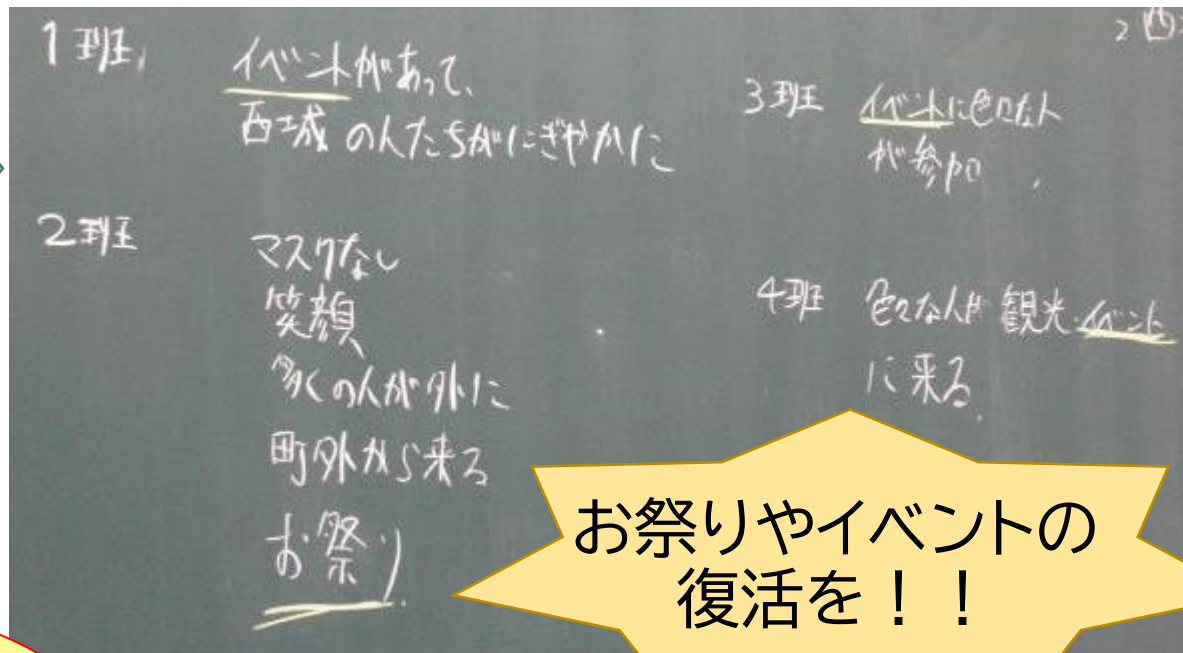 1班
イベントがあって、
西城の人たちがにぎやかに
2班
マスクなし
笑顔
多くの人が外に
町外から来る
お祭り
3班 イベントに色々な人
が参加
4班 色々な人が観光・イベント
に来る
お祭りやイベントの
復活を！！